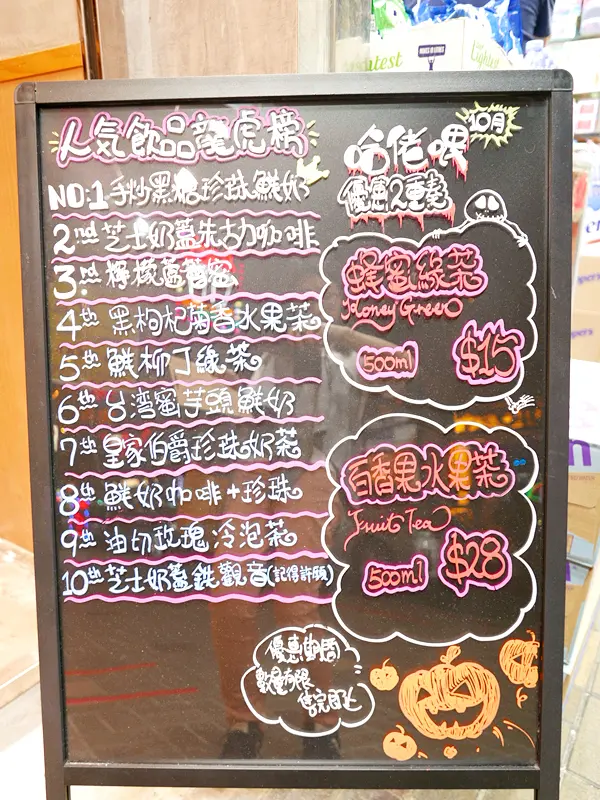 人气飲品龍虎榜
NO:1 手炒黑糖珍珠鮮奶
2nd 芝士奶蓋朱古力咖啡
3rd 檸檬蘆薈蜜
4th 黑枸杞菊香水果茶
5th 鮮柳丁綠茶
6th 台湾蜜芋頭鮮奶
7th 皇家伯爵珍珠奶茶
8th 鮮奶咖啡+珍珠
9th 油切玫瑰冷泡茶
10th 芝士奶蓋鉄觀音(記得許願)
10月
哈佬喂
優惠2重奏
蜂蜜綠茶
Honey Green
500ml
$15
百香果水果茶
Fruit Tea
500ml
$28
優惠期間
數量有限
售完即止